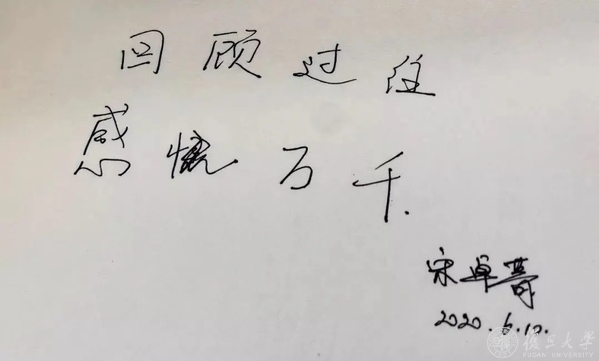 回顾过往
感慨万千.
宋卓
2020.6.10.
復旦大学
FUDAN UNIVERSITY